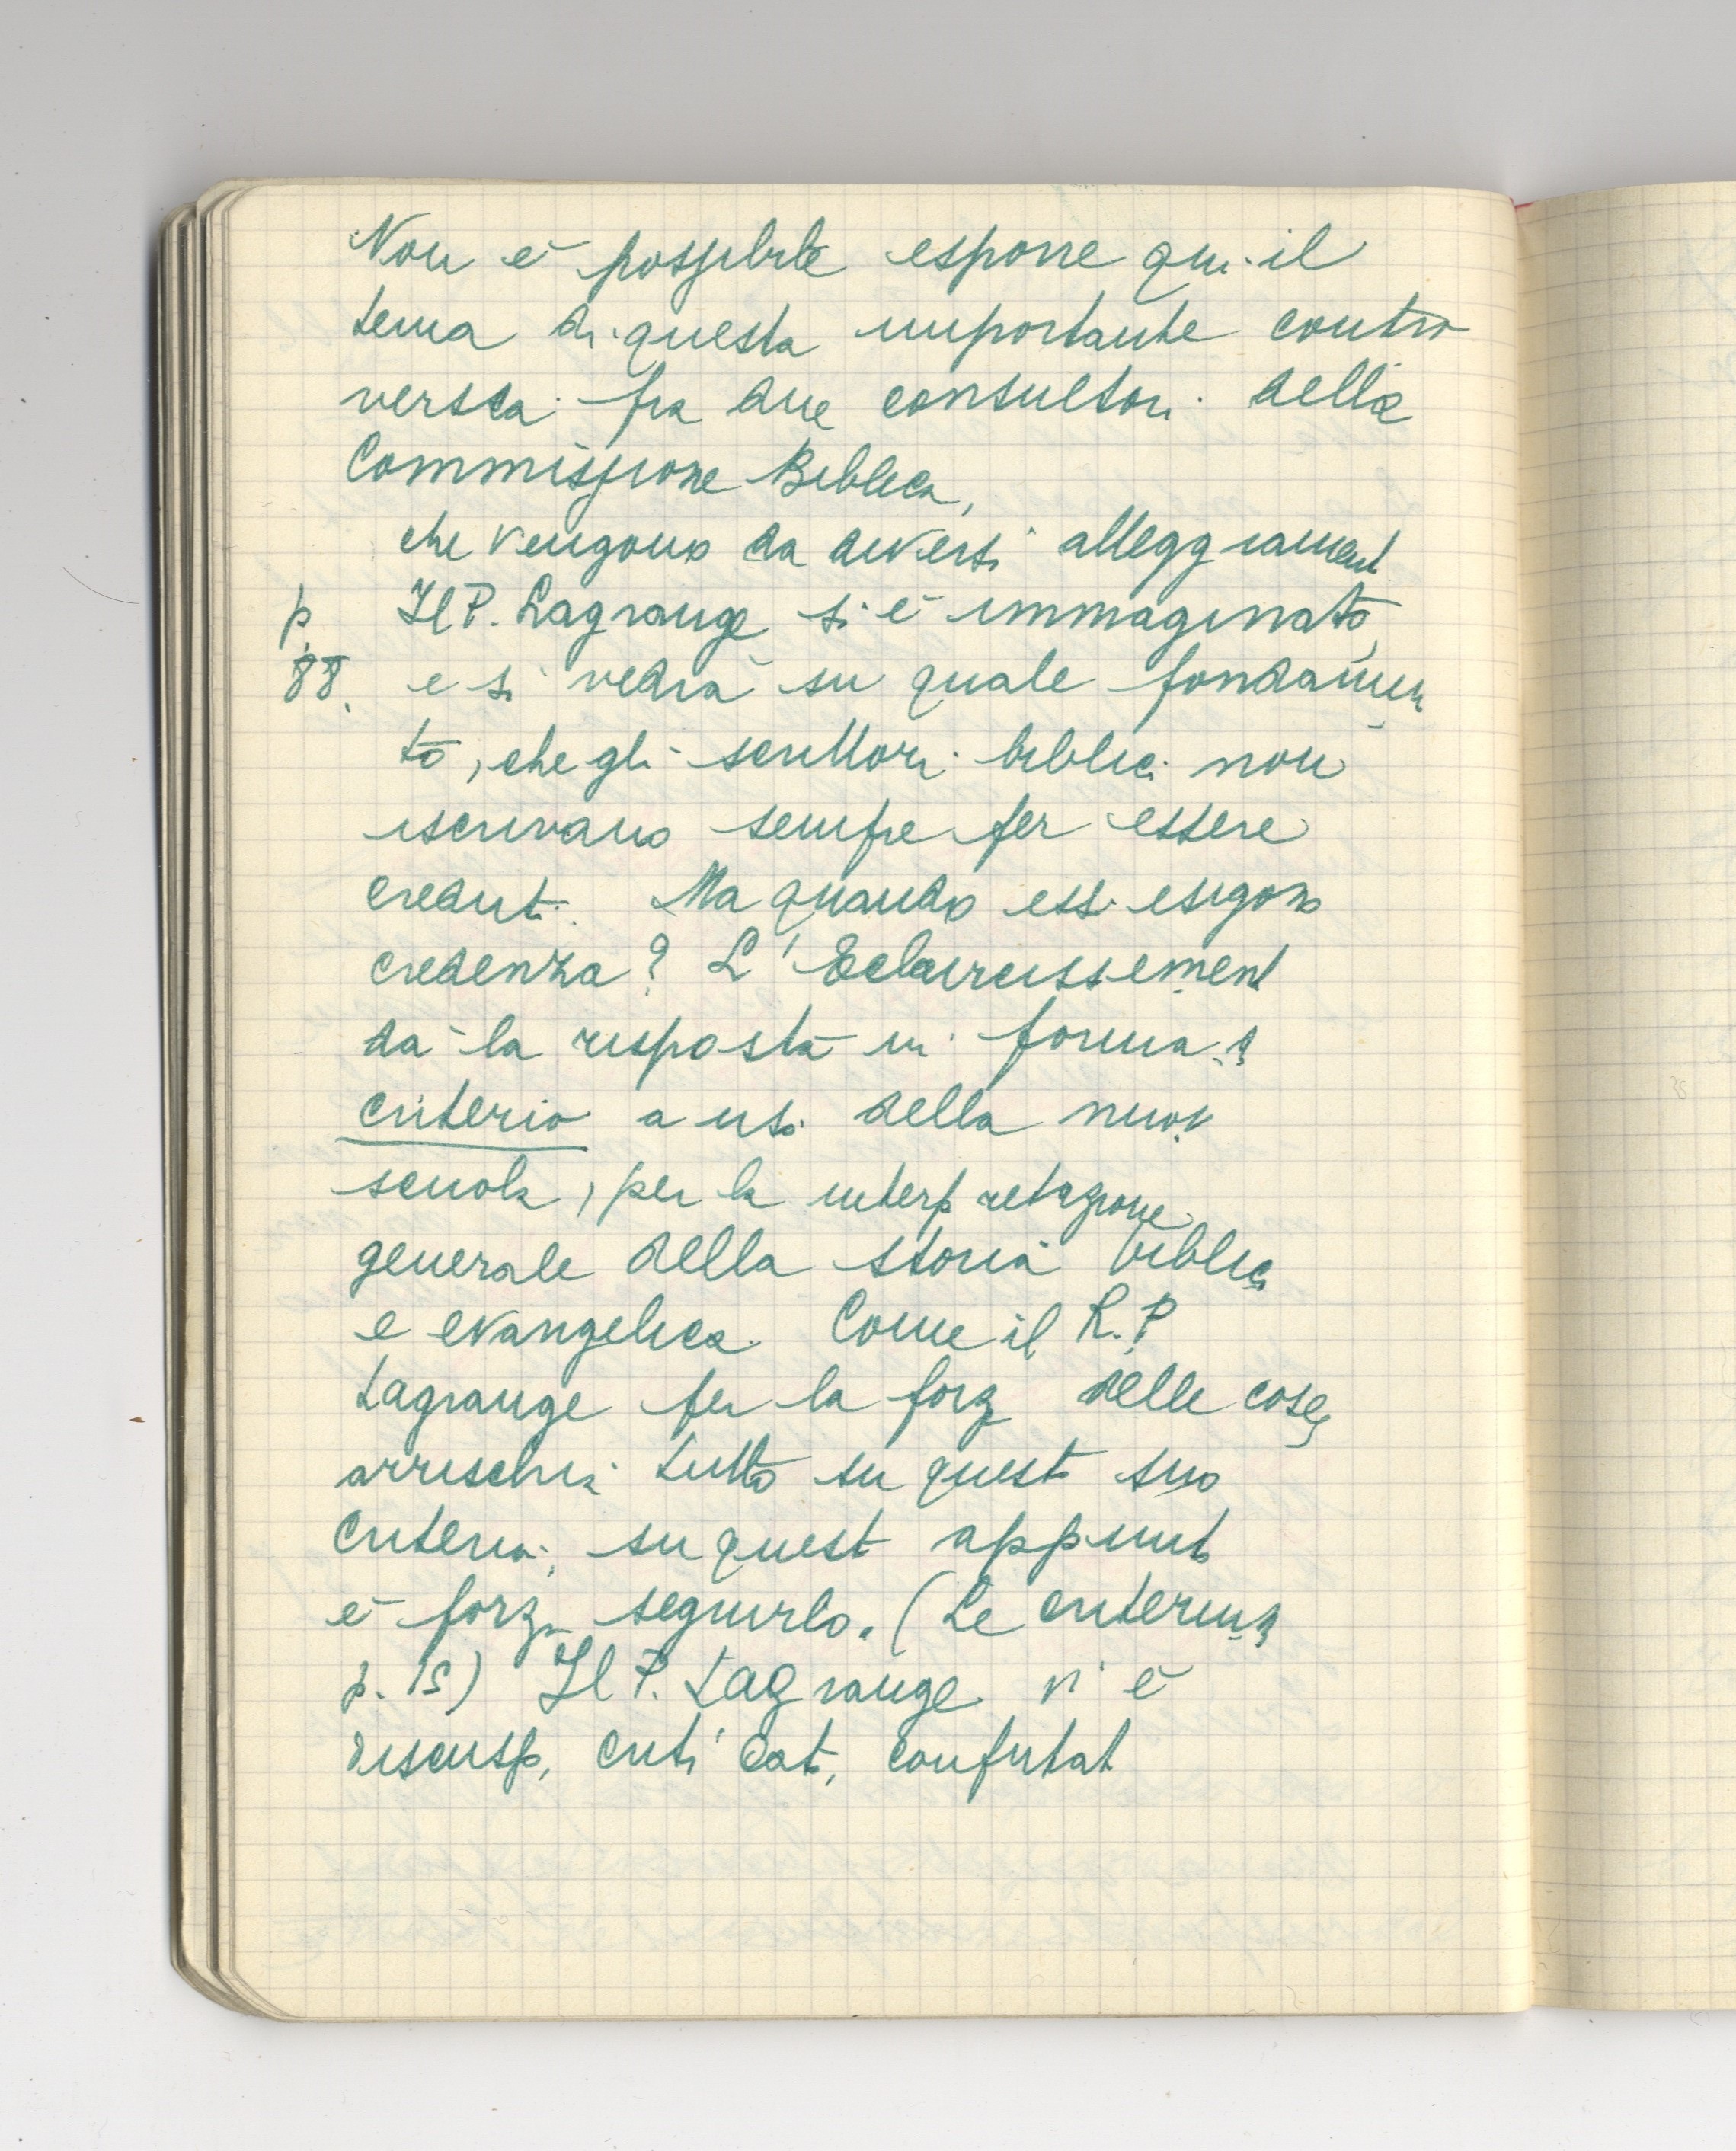 Non è possibile esporre qui il
tema di questa importante contro
versia fra due consultori della
Commissione Biblica,
che vengono da diversi atteggiament
p. Il P. Lagrange si è immaginato,
88. e si vedrà su quale fondamen
to, che gli scrittori biblici non
iscrivano sempre per essere
creduti. Ma quando essi esigono
credenza? L'Eclaircissement
dà la risposta in forma di
criterio a uso della nuov
scuola, per la interpretazione
generale della storia biblica
e evangelica. Come il R. P.
Lagrange per la forz delle cose
arrischia tutto su questo suo
criterio, su quest appunto
è forza seguirlo. (Le criterium
p. 15) Il P. Lagrange vi è
discusso, criticato, confutat